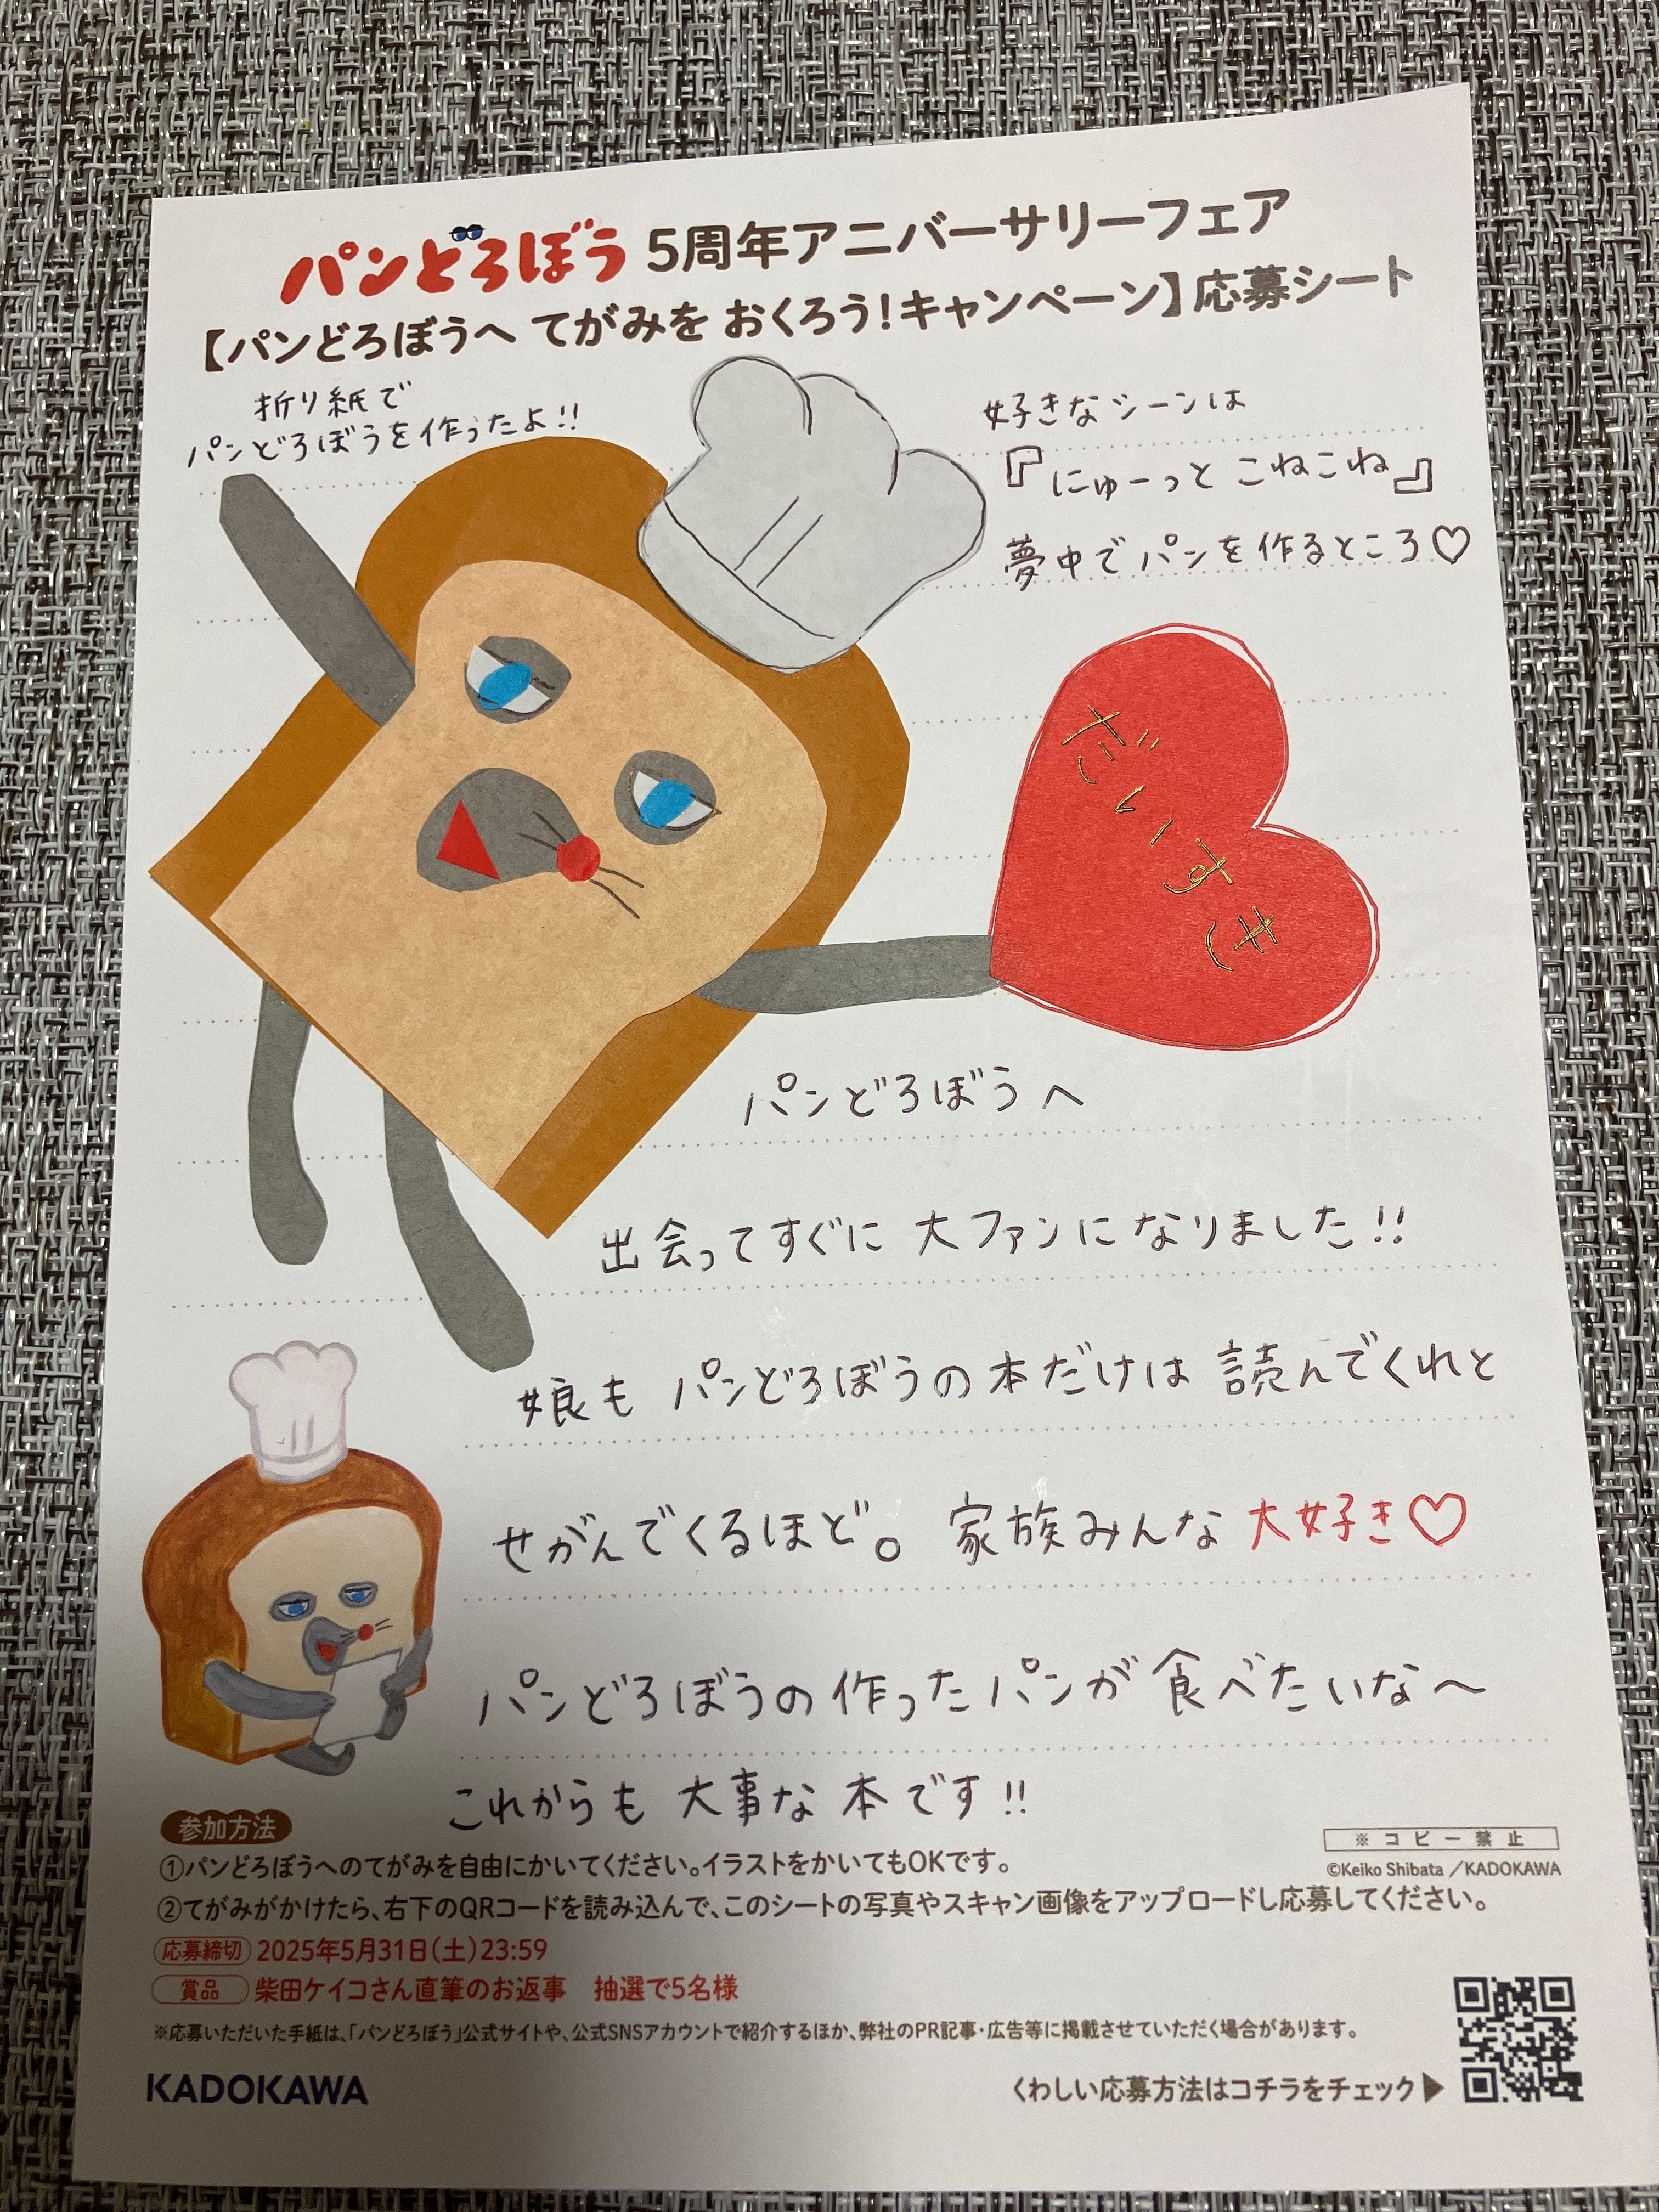 パンどろぼう 5周年アニバーサリーフェア
【パンどろぼうへ てがみを おくろう!キャンペーン】応募シート
折り紙で
パンどろぼうを作ったよ!!
好きなシーンは
『にゅーっと こねこね』
夢中でパンを作るところ♡
だいすき
パンどろぼうへ
出会ってすぐに 大ファンになりました!!
娘も パンどろぼうの本だけは 読んでくれと
せがんでくるほど。 家族みんな 大好き♡
パンどろぼうの作ったパンが 食べたいな〜
これからも 大事な 本です!!
参加方法
①パンどろぼうへのてがみを自由にかいてください。イラストをかいてもOKです。
②てがみがかけたら、右下のQRコードを読み込んで、このシートの写真やスキャン画像をアップロードし応募してください。
※コピー禁止
©Keiko Shibata /KADOKAWA
応募締切 2025年5月31日(土)23:59
賞品 柴田ケイコさん直筆のお返事 抽選で5名様
※応募いただいた手紙は、「パンどろぼう」公式サイトや、公式SNSアカウントで紹介するほか、弊社のPR記事・広告等に掲載させていただく場合があります。
KADOKAWA
くわしい応募方法はコチラをチェック▶